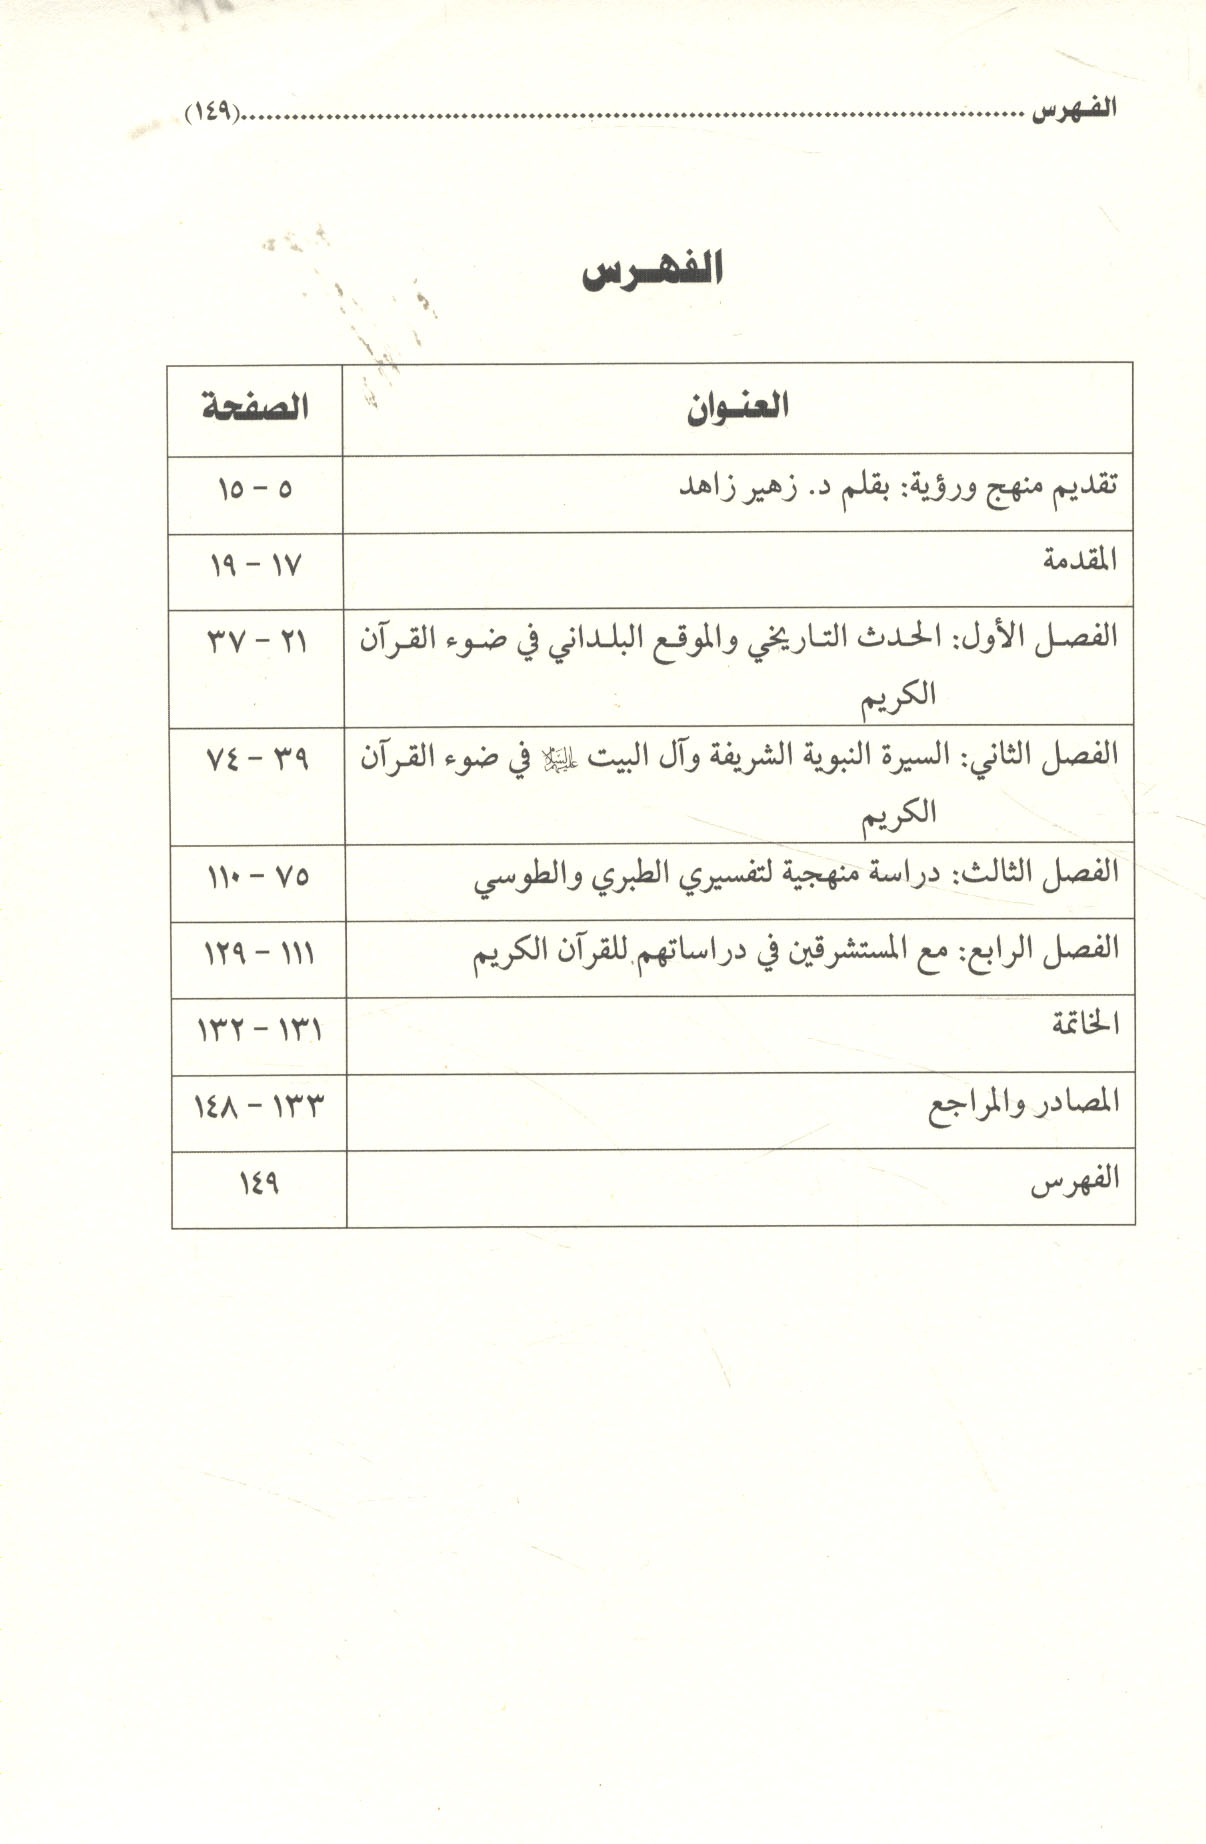 الفهرس ........................................................................(١٤٩)
الفهرس
العنوان الصفحة
تقديم منهج ورؤية: بقلم د. زهير زاهد ٥ – ١٥
المقدمة ١٧ – ١٩
الفصل الأول: الحدث التاريخي والموقع البلداني في ضوء القرآن ٢١ – ٣٧
الكريم
الفصل الثاني: السيرة النبوية الشريفة وآل البيت في ضوء القرآن ٣٩ – ٧٤
الكريم
الفصل الثالث: دراسة منهجية لتفسيري الطبري والطوسي ٧٥ – ١١٠
الفصل الرابع: مع المستشرقين في دراساتهم للقرآن الكريم ١١١ – ١٢٩
الخاتمة ١٣١ – ١٣٢
المصادر والمراجع ١٣٣ – ١٤٨
الفهرس ١٤٩